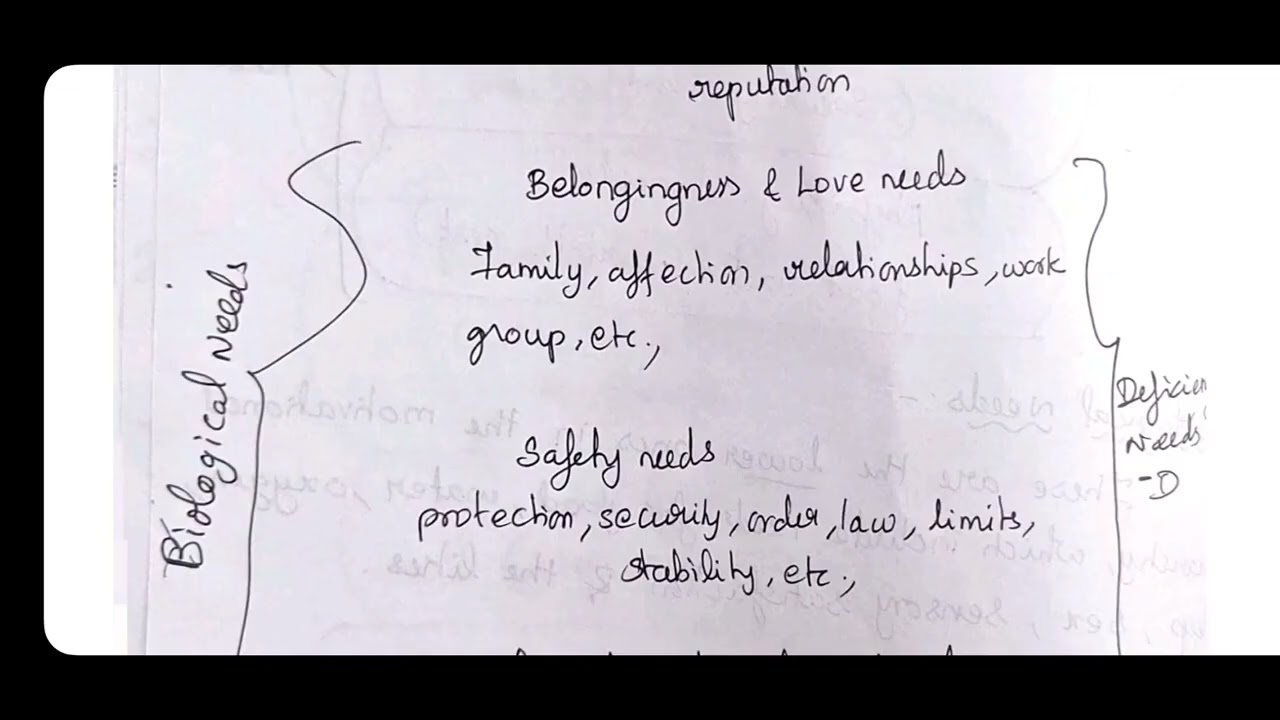 reputation
Belongingness & Love needs
Family, affection, relationships, work
group, etc.,
Biological Needs
Safety needs
protection, security, order, law, limits,
stability, etc.,
Deficien
Needs
-D